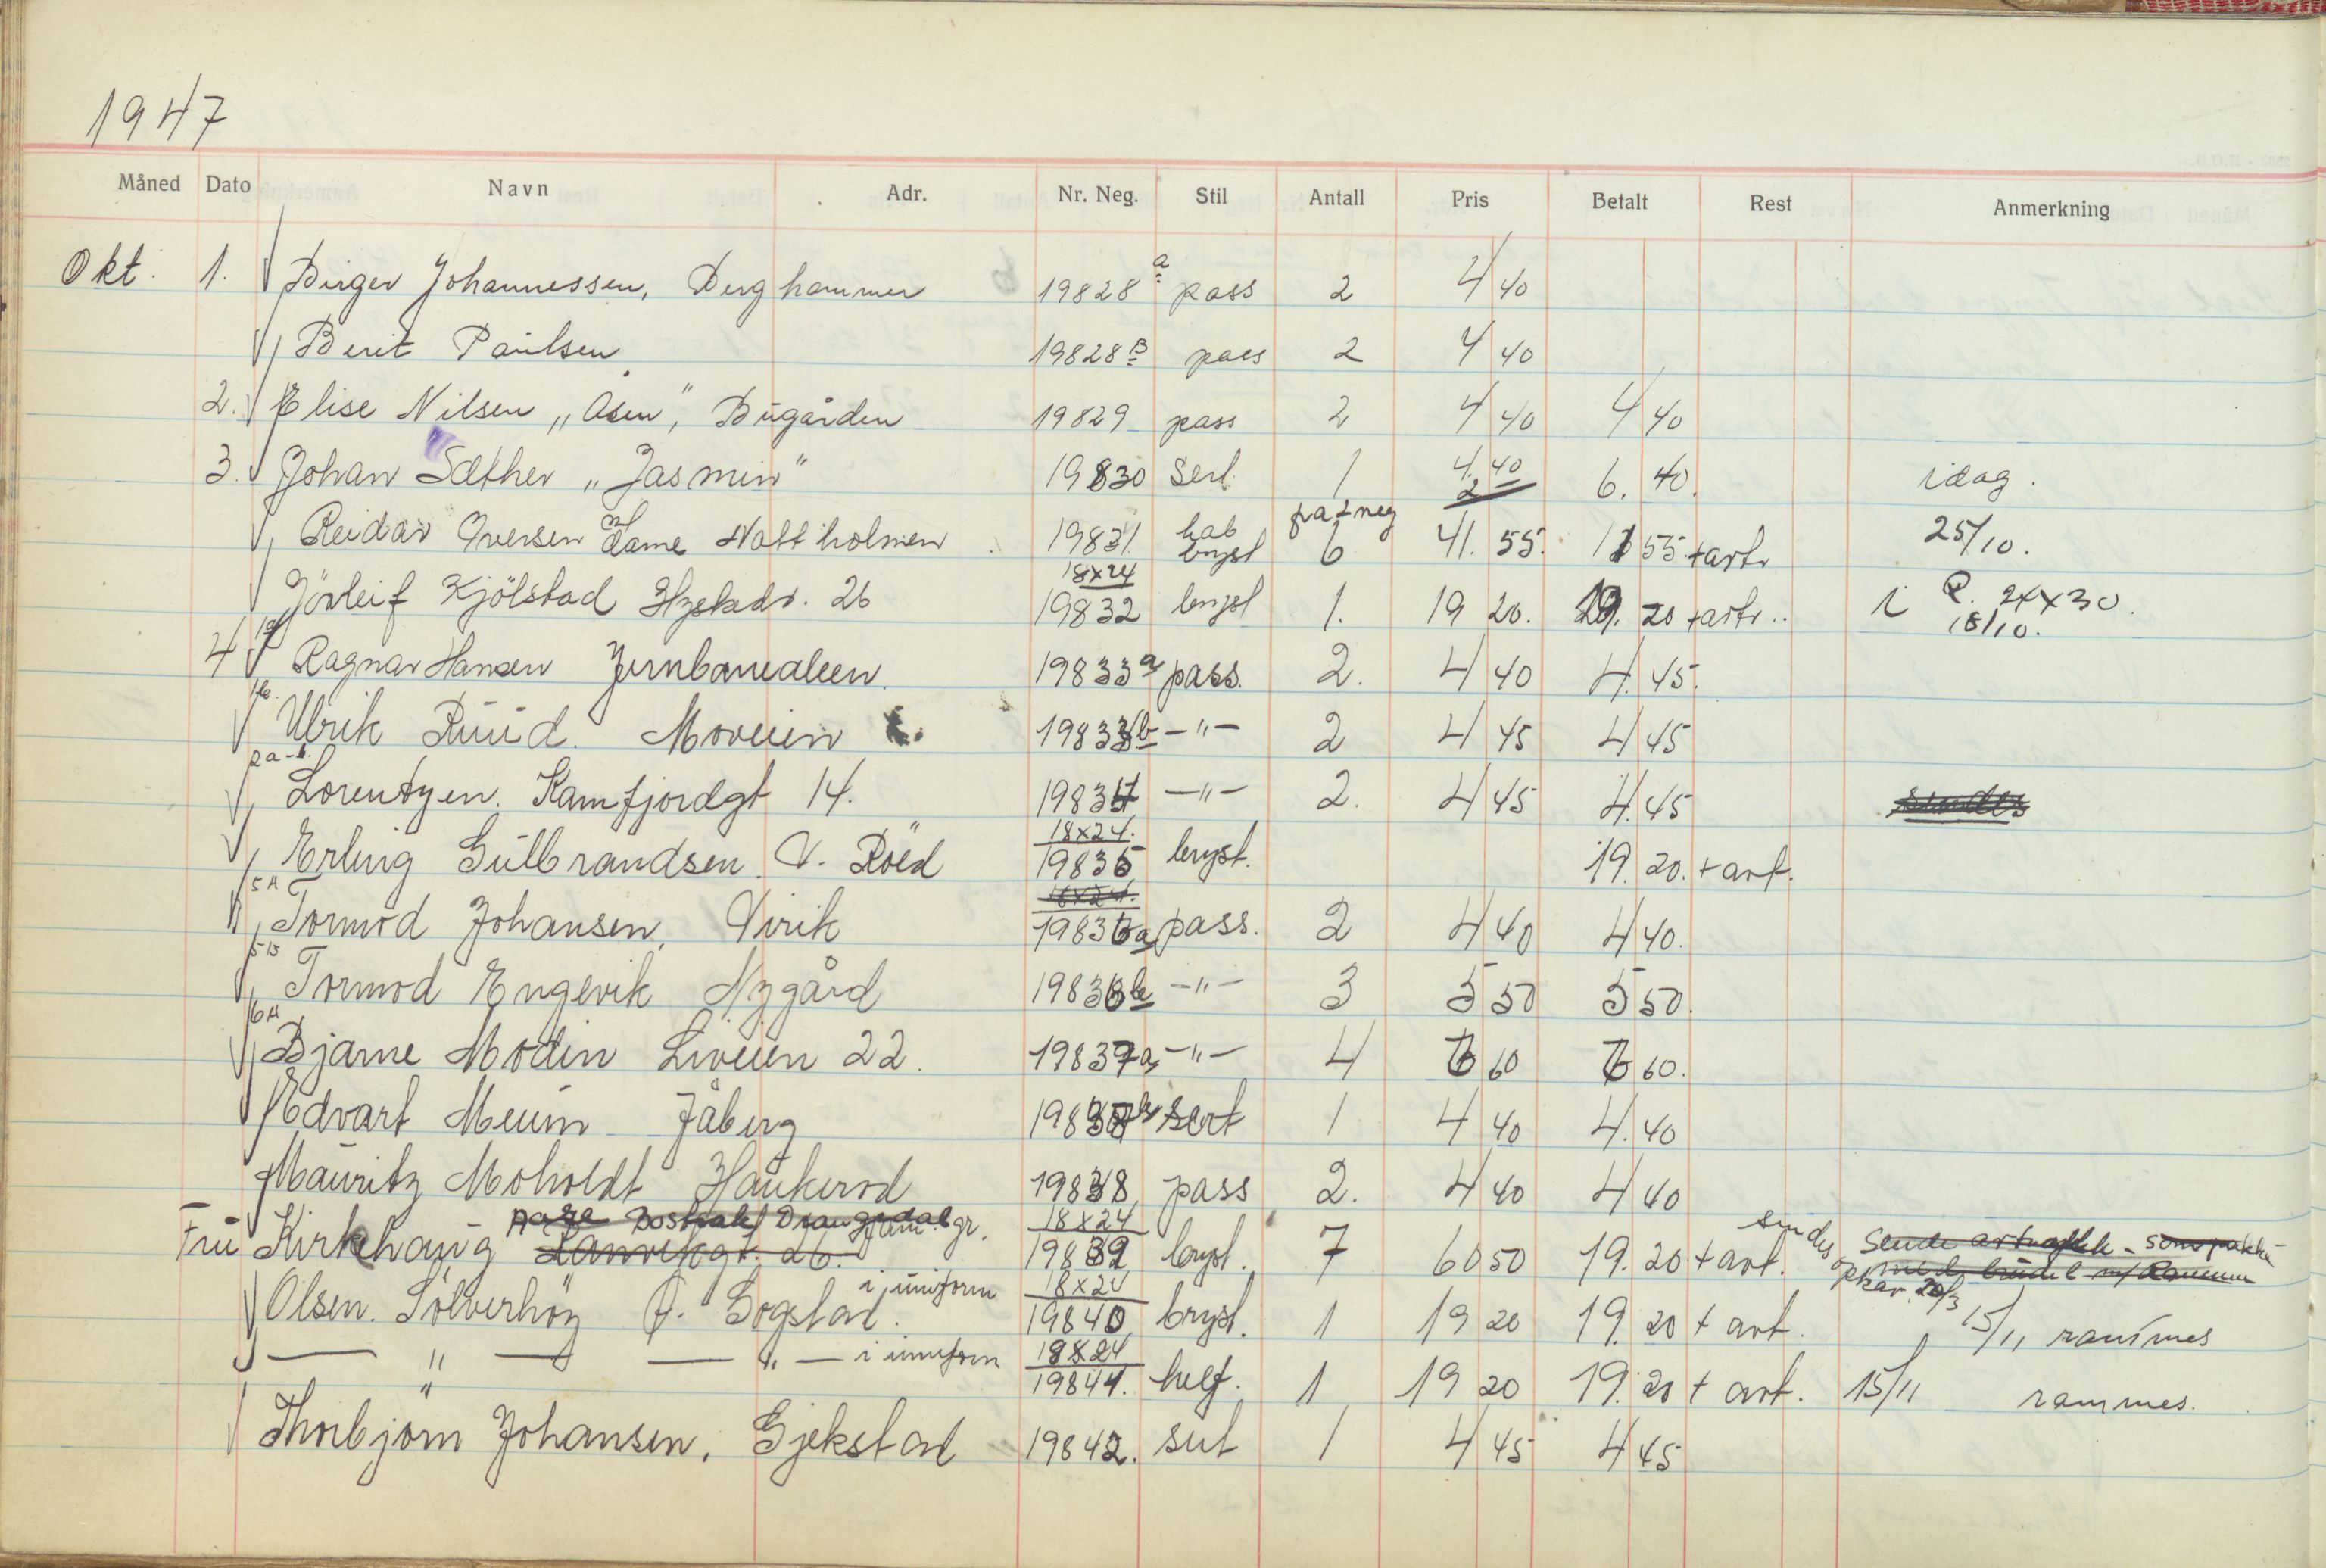 1947
Måned Dato Navn Adr. Nr. Neg. Stil Antall Pris Betalt Rest Anmerkning
Okt. 1. Birger Johannessen, Berghammer 19828 a pass 2 4 40
Berit Paulsen 19828 B pass 2 4 40
2. Elise Nilsen „Åsen", Bugården 19829 pass 2 4 40 4 40
3. Johan Sæther „Jasmin" 19830 Serl. 1 4.40 2 6. 40. idag.
Reidar Iversen m/ dame Nattholmen 19831. kab bryst på 2 neg 6 41. 55. 11 55 + artr 25/10.
Jörleif Kjölstad 26 18x24 19832 bryst 1. 19 20. 19. 20 + artr.. i P. 24x30. 18/10.
4 Ragnar Hansen Jernbanealeen. 19833a pass. 2. 4 40 4. 45.
Ulrik Ruud. Moveien 19833b -"- 2 4 45 4 45
2a-b. Lorentzen. Kamfjordgt 14. 19834 -"- 2. 4 45 4. 45 sendes
Erling Gulbrandsen. V. Röed 18x24. 19835 bryst. 19. 20. + art.
5A Tormod Johansen, Virik 18x24. 19836a pass. 2 4 40 4 40.
5B Tormod Engevik Nygård 19836b -"- 3 5 50 5 50.
6A Bjarne Modin Liveien 22. 19837a -"- 4 6 60 6 60.
Edvart Meum Jåberg 19837b sert 1 4 40 4. 40
Mauritz Moholdt Haukerød 19838 pass 2. 4 40 4 40
Fru Kirkehaug Lanvikgt. 26. Drangedal gr. 18x24 19839 bryst. 7 60 50 19. 20 + art. sendes
Olsen. Sölverhöy Ö. Gogstad. i uniform 18x24 19840 bryst. 1 19 20 19. 20 + art. 15/11 rammes
— " — — " — i uniform 18x24 19841. helf. 1 19 20 19. 20 + art. 15/11 rammes.
Thorbjørn Johansen, Gjekstad 19842. sert 1 4 45 4 45